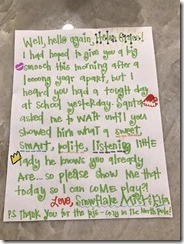 Well, hello again,
I had hoped to give you a big
smooch this morning after a
loooong year apart, but I
heard you had a tough day
at school yesterday. Santa
asked me to wait until you
showed him what a sweet,
smart, polite, listening little
lady he knows you already
are...so please show me that
today so I can come play?!
Love, Snowflake
P.S. Thank you for the pjs - cozy in The North Pole!